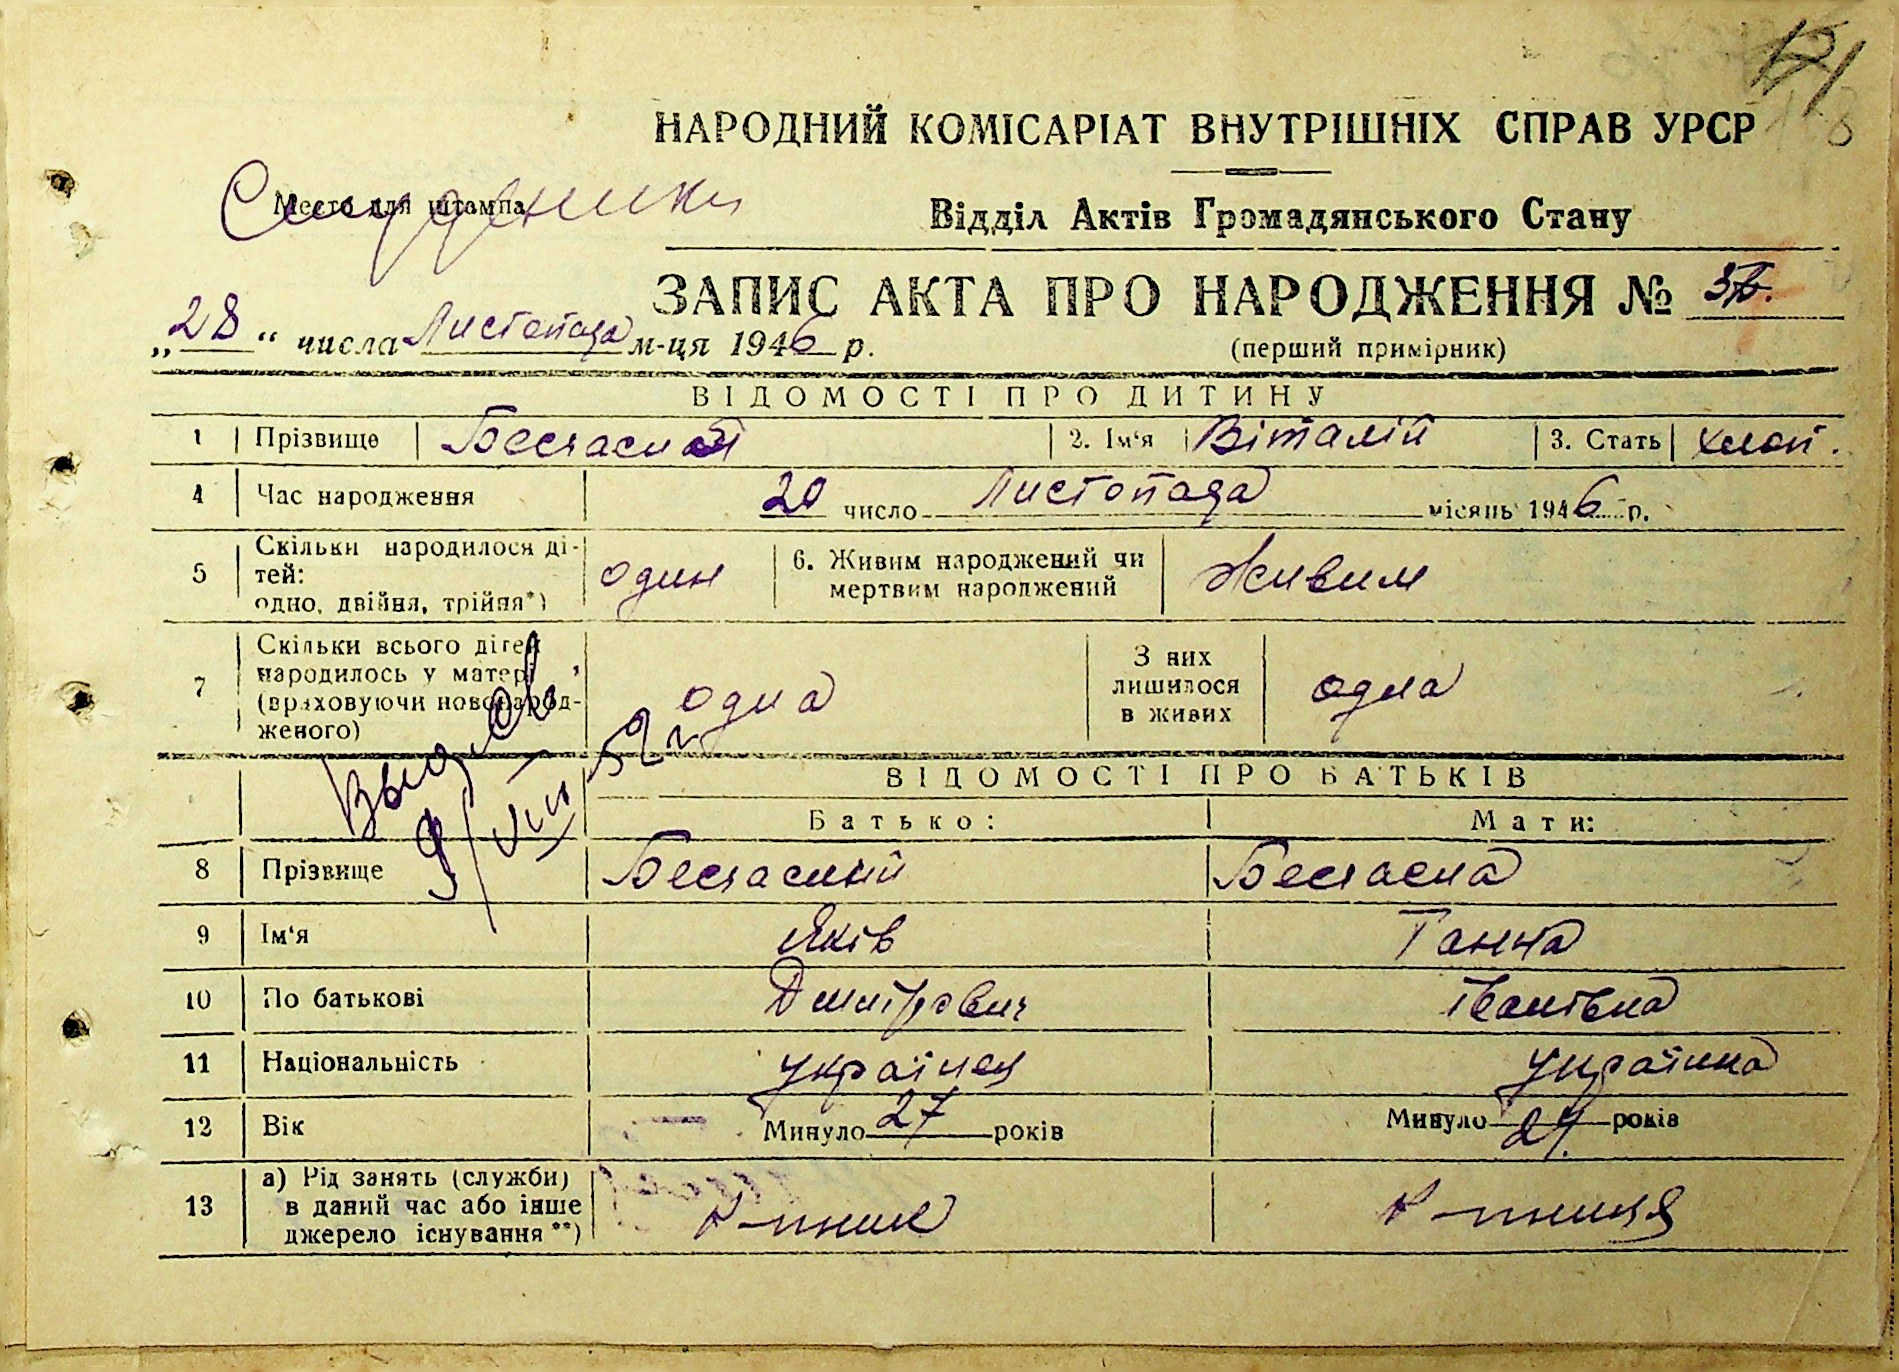 121
НАРОДНИЙ КОМІСАРІАТ ВНУТРІШНІХ СПРАВ УРСР
Место для штампа
Відділ Актів Громадянського Стану
ЗАПИС АКТА ПРО НАРОДЖЕННЯ №
„28“ числа Листопада м-ця 1946 р.
(перший примірник)
ВІДОМОСТІ ПРО ДИТИНУ
1 Прізвище Бесчасний 2. Ім‘я Віталій 3. Стать хлоп.
4 Час народження 20 число Листопада місяць 1946 р.
5 Скільки народилося ді-
тей:
одно, двійня, трійня*) один 6. Живим народжений чи
мертвим народжений Живим
7 Скільки всього дітей
народилось у матері
(враховуючи новонарод-
женого) одна З них
лишилося
в живих одна
9/VIII 52 г.
ВІДОМОСТІ ПРО БАТЬКІВ
Батько: Мати:
8 Прізвище Бесчасний Бесчасна
9 Ім‘я Яків Ганна
10 По батькові Дмитрович Іванівна
11 Національність українец українка
12 Вік Минуло 27 років Минуло 24 років
13 а) Рід занять (служби)
в даний час або інше
джерело існування**) к-пник к-пниця